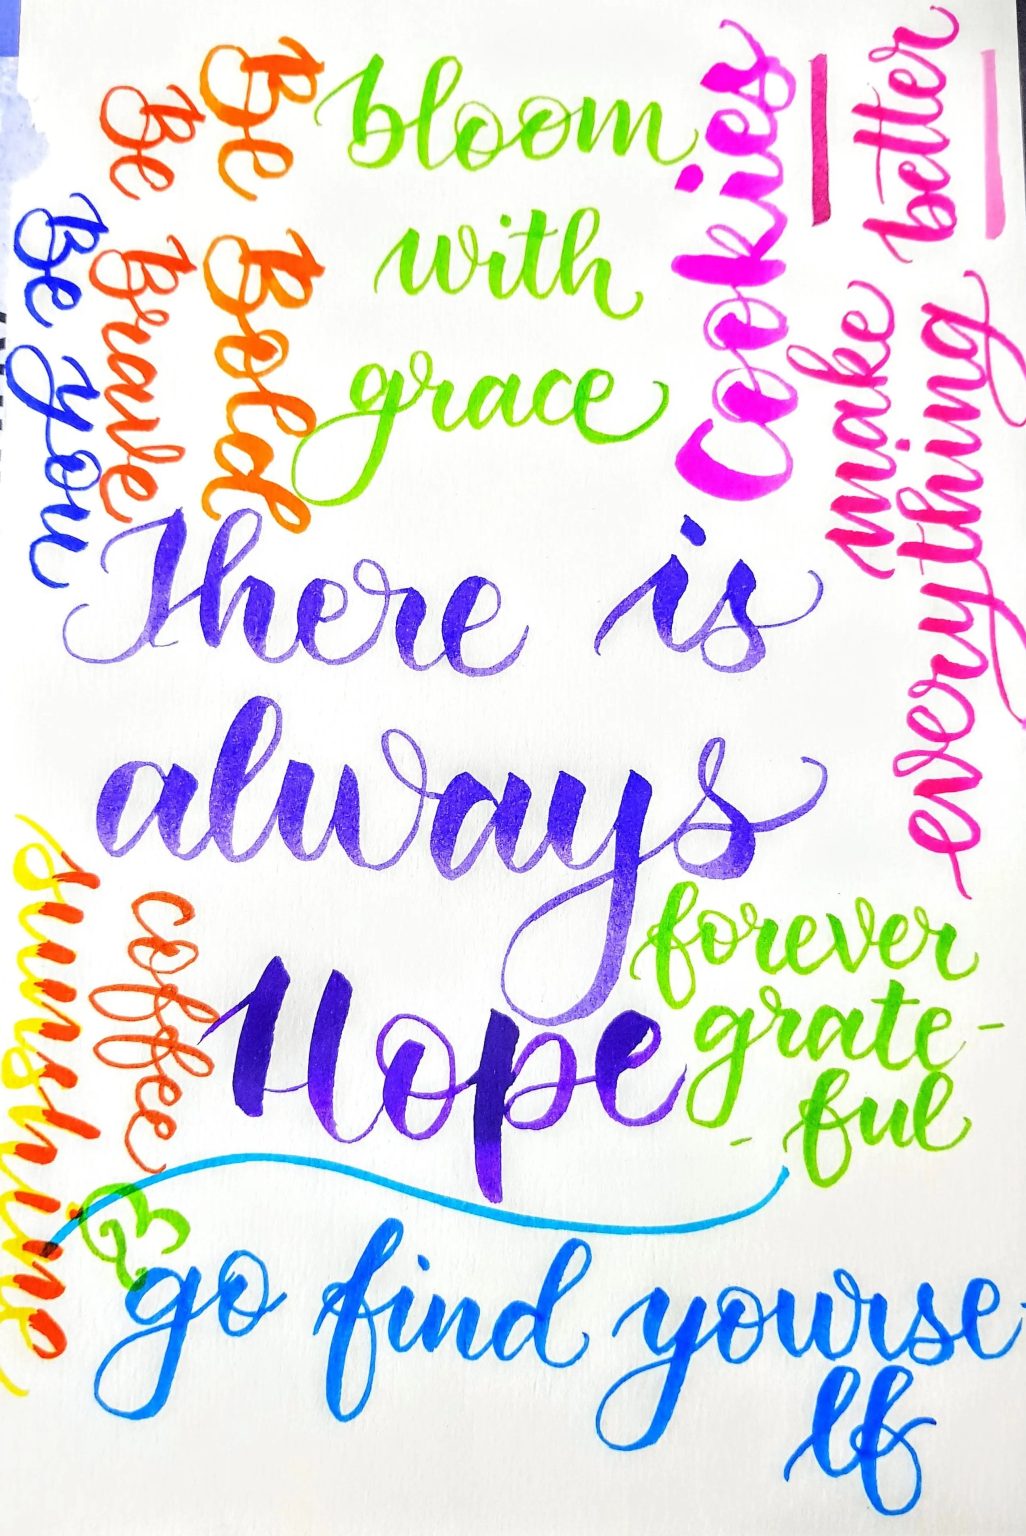 Be you
Be Brave
Be Bold
bloom
with
grace
Cookies
make
everything
better
There is
always
Hope
forever
grate-
-ful
sunshine
&
coffee
go find yourse-
lf